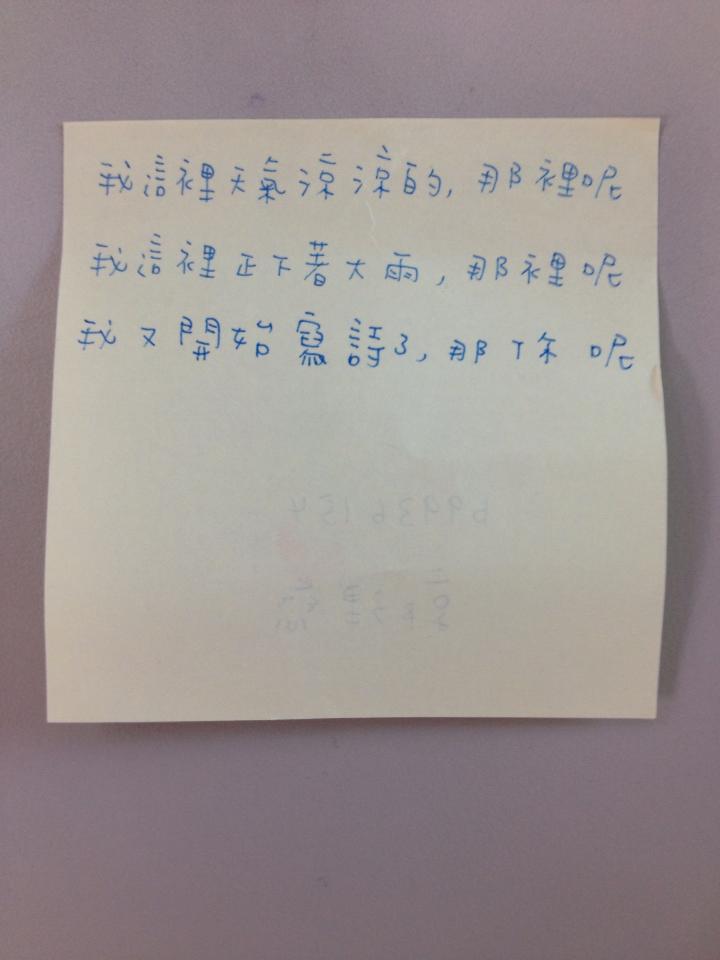 我這裡天氣涼涼的，那裡呢
我這裡正下著大雨，那裡呢
我又開始寫詩了，那你呢